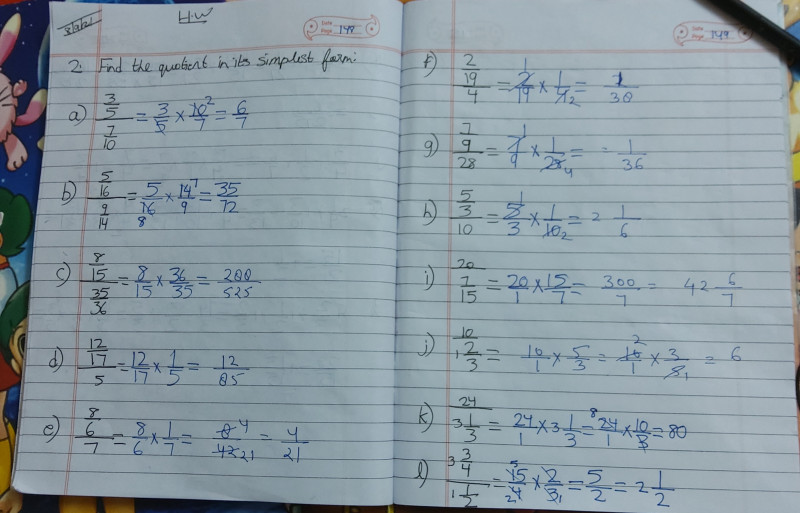 H.W
Date
Page 148
2. Find the quotient in its simplest form:
a) 3/5 / 7/10 = 3/5 × 10²/7 = 6/7
b) 5/16 / 9/14 = 5/16 8 × 14⁷/9 = 35/72
c) 8/15 / 35/36 = 8/15 × 36/35 = 288/525
d) 12/17 / 5 = 12/17 × 1/5 = 12/85
e) 8/6 / 7 = 8/6 × 1/7 = 8⁴/42 21 = 4/21
Date
Page 149
f) 2/19 / 4 = 2¹/19 × 1/4 2 = 1/38
g) 7/9 / 28 = 7¹/9 × 1/28 4 = 1/36
h) 5/3 / 10 = 5¹/3 × 1/10 2 = 1/6
i) 20 / 7/15 = 20/1 × 15/7 = 300/7 = 42 6/7
j) 10 / 1 2/3 = 10/1 × 5/3 = 10²/1 × 3/5 1 = 6
k) 24 / 3 1/3 = 24/1 × 3 1/3 = ⁸24/1 × 10/3 = 80
l) 3 3/4 / 1 1/2 = 15⁵/4 2 × 2/3 1 = 5/2 = 2 1/2